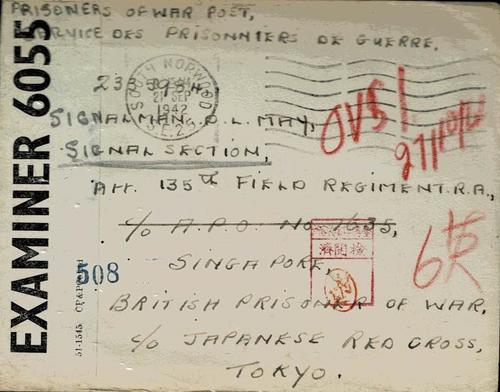 PRISONERS OF WAR POST,
SERVICE DES PRISONNIERS DE GUERRE.
SOUTH NORWOOD
21 SEP
1942
S.E.25
SIGNALMAN. D. L. MAY,
SIGNAL SECTION,
ATT. 135TH FIELD REGIMENT. R.A.,
C/O A.P.O. NO. 1635,
SINGAPORE,
BRITISH PRISONER OF WAR,
C/O JAPANESE RED CROSS,
TOKYO.
EXAMINER 6055
508
51-1545
檢閲濟